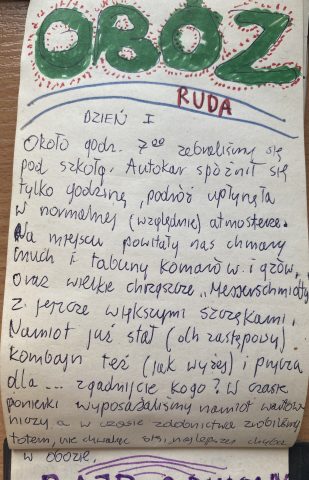 OBÓZ
RUDA
DZIEŃ I
Około godz. 7⁰⁰ zebraliśmy się
pod szkołą. Autokar spóźnił się
tylko godzinę, podróż upłynęła
w normalnej (względnie) atmosferze.
Na miejscu powitały nas chmary
much i tabuny komarów i gzów,
oraz wielkie chrząszcze „Messerschmitty"
z jeszcze większymi szczękami.
Namiot już stał (dh zastępowy)
kombajn też (jak wyżej) i prycza
dla ... zgadnijcie kogo? W czasie
pionierki wyposażaliśmy namiot
a w czasie zdobnictwa zrobiliśmy
totem, nie chwaląc się, najlepszy chyba
w obozie.